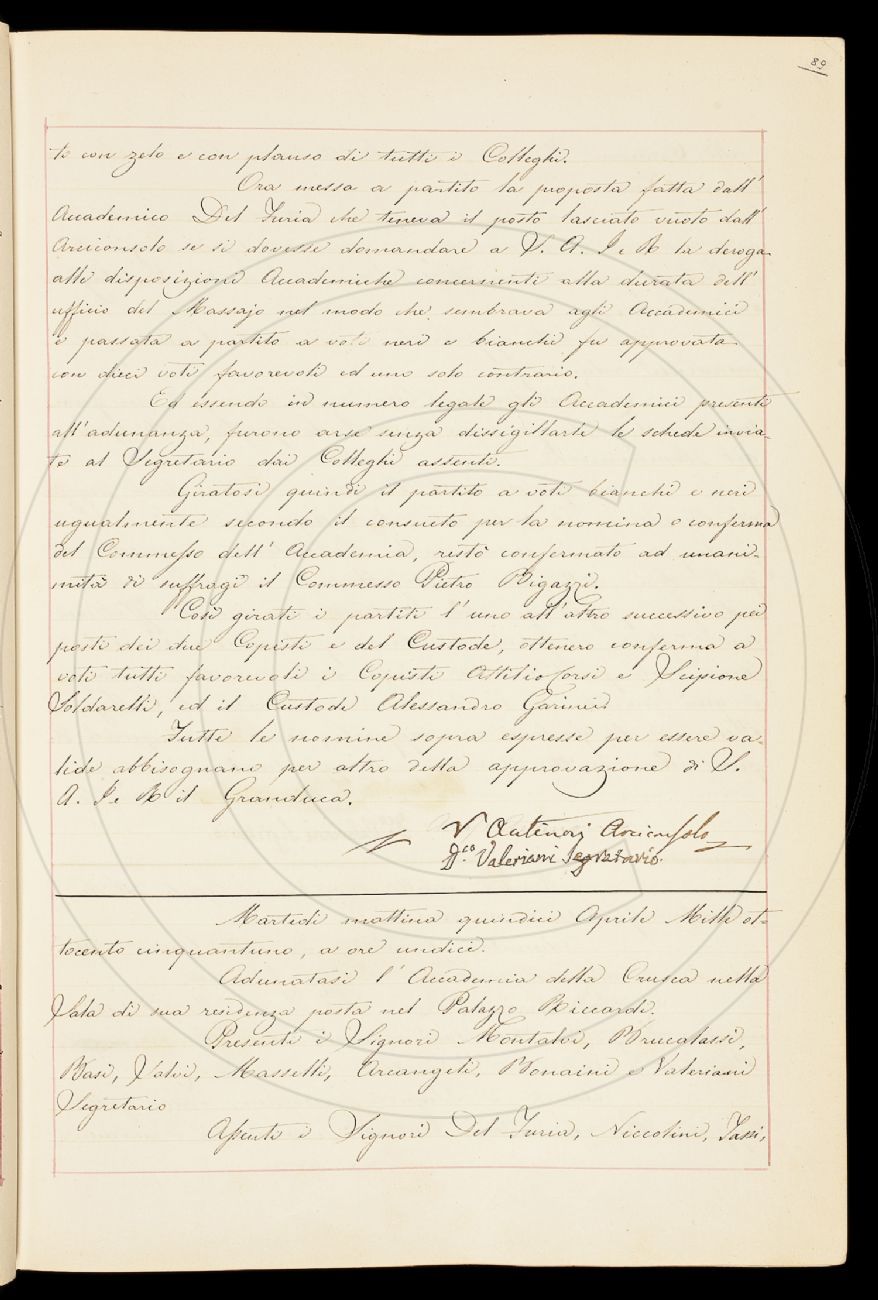 89
to con zelo e con plauso di tutti i Colleghi.
Ora messa a partito la proposta fatta dall'
Accademico Del Furia che teneva il posto lasciato vuoto dall'
Arciconsolo se si dovesse domandare a S. A. I e R la deroga
alle disposizioni Accademiche concernenti alla durata dell'
ufficio del Massajo nel modo che sembrava agli Accademici
e passata a partito a voti neri e bianchi fu approvata
con dieci voti favorevoli ed uno solo contrario.
Ed essendo in numero legale gli Accademici presenti
all'adunanza, furono arse senza dissigillarle le schede invia-
te al Segretario dai Colleghi assenti.
Giratosi quindi il partito a voti bianchi e neri
ugualmente secondo il consueto per la nomina o conferma
del Commesso dell' Accademia, restò confermato ad unani-
mità di suffragi il Commesso Pietro Bigazzi.
Così girati i partiti l'uno all'altro successivo pei
posti dei due Copisti e del Custode, ottenero conferma a
voti tutti favorevoli i Copisti Attilio Corsi e Scipione
Soldarelli, ed il Custode Alessandro Garinei
Tutte le nomine sopra espresse per essere va-
lide abbisognano per altro della approvazione di S.
A. I e R il Granduca.
V Antinori Arciconsolo
Dco. Valeriani Segretario.
Martedi mattina quindici Aprile Mille ot-
tocento cinquantuno, a ore undici.
Adunatasi l'Accademia della Crusca nella
Sala di sua residenza posta nel Palazzo Riccardi.
Presenti i Signori Montalvi, Brucalassi,
Basi, Salvi, Masselli, Arcangeli, Bonaini e Valeriani
Segretario
Assenti i Signori Del Furia, Niccolini, Tassi,